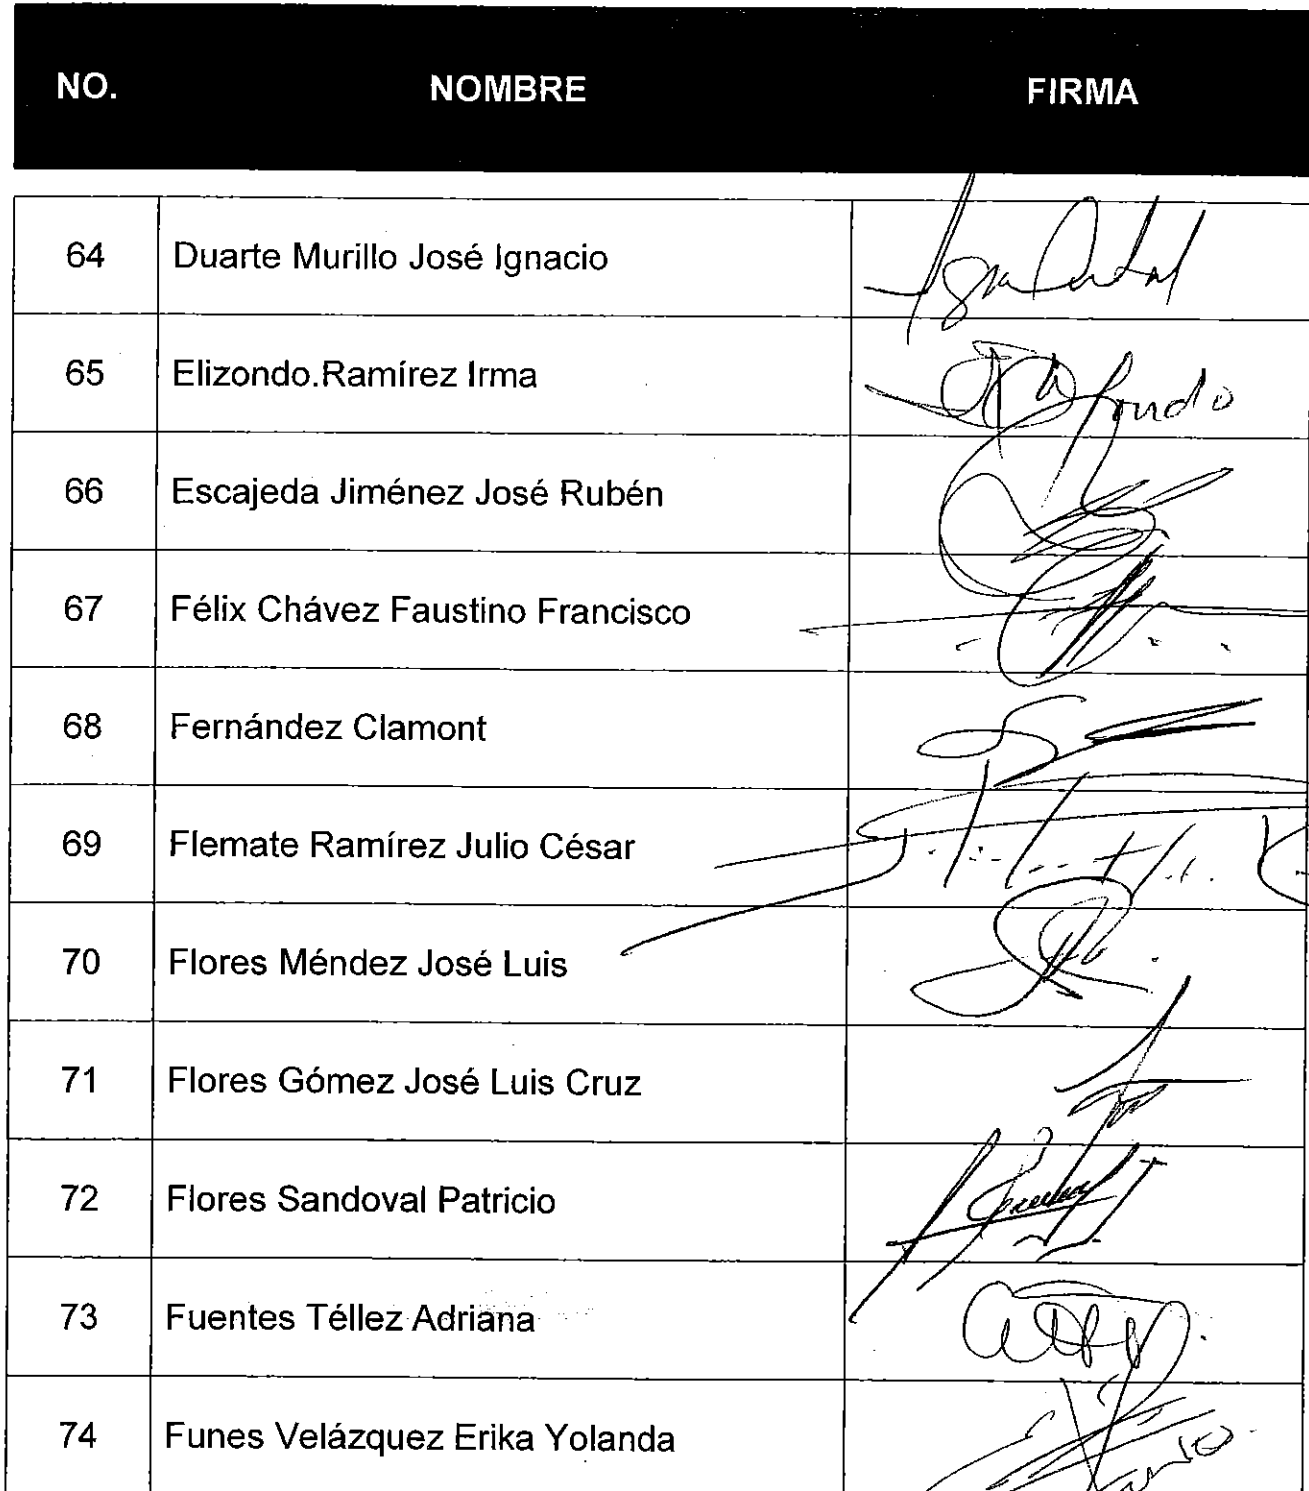 NO. NOMBRE FIRMA
64 Duarte Murillo José Ignacio
65 Elizondo.Ramírez Irma
66 Escajeda Jiménez José Rubén
67 Félix Chávez Faustino Francisco
68 Fernández Clamont
69 Flemate Ramírez Julio César
70 Flores Méndez José Luis
71 Flores Gómez José Luis Cruz
72 Flores Sandoval Patricio
73 Fuentes Téllez Adriana
74 Funes Velázquez Erika Yolanda